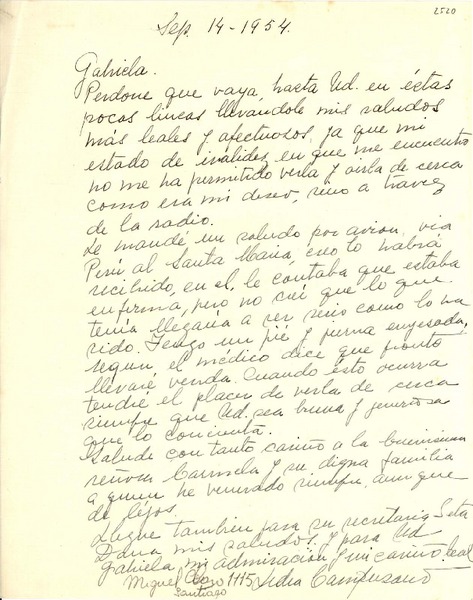 2520
Sep. 14-1954.
Gabriela.
Perdone que vaya hasta Ud. en éstas
pocas líneas llevándole mis saludos
más leales y afectuosos, ya que mi
estado de inválidez en que me encuentro
no me ha permitido verla y oirla de cerca
como era mi deseo, sino a travez
de la radio.
Le mandé un saludo por avion, via
Perú al Santa María, creo lo habrá
recibido, en el, le contaba que estaba
enferma, pero no creí que lo que
tenía llegaria a ser serio como lo ha
sido. Tengo un pié y pierna enyesada,
segun el médico dice que pronto
llevaré venda. Cuando ésto ocurra
tendré el placer de verla de cerca
siempre que Ud. sea buena y generosa
que lo concienta.
Salude con tanto cariño a la buenísima
señora Carmela y su digna familia
a quien he venerado siempre, aunque
de léjos.
Llegue tambien para su secretaria Srta
Dana mis saludos, y para Ud
Gabriela mi admiración y mi cariño leal
Lidia Campusano
Miguel 1115
Santiago